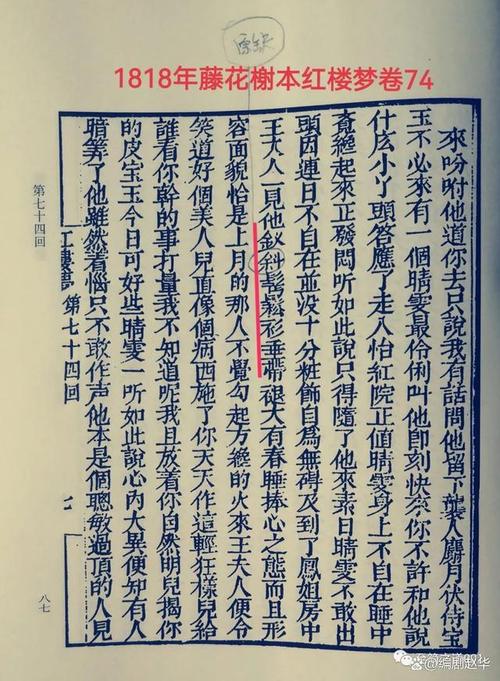 1818年藤花榭本红楼梦卷74
來吩咐他道你去只說我有話問他留下襲人麝月伏侍寶
玉不必來有一個晴雯最伶俐叫他卽刻快來你不許和他說
什庅小丫頭答應了走入怡紅院正值晴雯身上不自在睡中
覺纔起來正發悶听如此說只得隨了他來素日晴雯不敢出
頭因連日不自在並沒十分粧飾自爲無碍及到了鳳姐房中
王夫人一見他釵斜鬢鬆衫垂帶褪大有春睡捧心之態而且形
容面貌恰是上月的那人不覺勾起方纔的火來王夫人便令
笑道好個美人兒直像個病西施了你天天作這輕狂樣兒給
誰看你幹的事打量我不知道呢我且放着你自然明兒揭你
的皮宝玉今日可好些晴雯一听如此說心內大異便知有人
暗筭了他雖然着惱只不敢作声他本是個聰敏過頂的人見
紅樓夢 第七十四回 七
第七十四回
八七
@编剧赵华